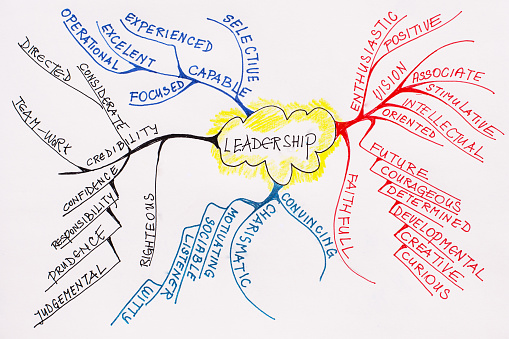 LEADERSHIP
SELECTIVE
EXPERIENCED
EXCELENT
OPERATIONAL
CAPABLE
FOCUSED
ENTHUSIASTIC
POSITIVE
VISION
ASSOCIATE
STIMULATIVE
INTELLECTUAL
ORIENTED
FUTURE
COURAGEOUS
DETERMINED
DEVELOPMENTAL
CREATIVE
CURIOUS
FAITHFULL
CONVINCING
CHARISMATIC
MOTIVATING
SOCIABLE
LISTENER
WITTY
DIRECTED
CONSIDERATE
TEAM-WORK
CREDIBILITY
CONFIDENCE
RESPONSIBILITY
PRUDENCE
JUDGEMENTAL
RIGHTEOUS